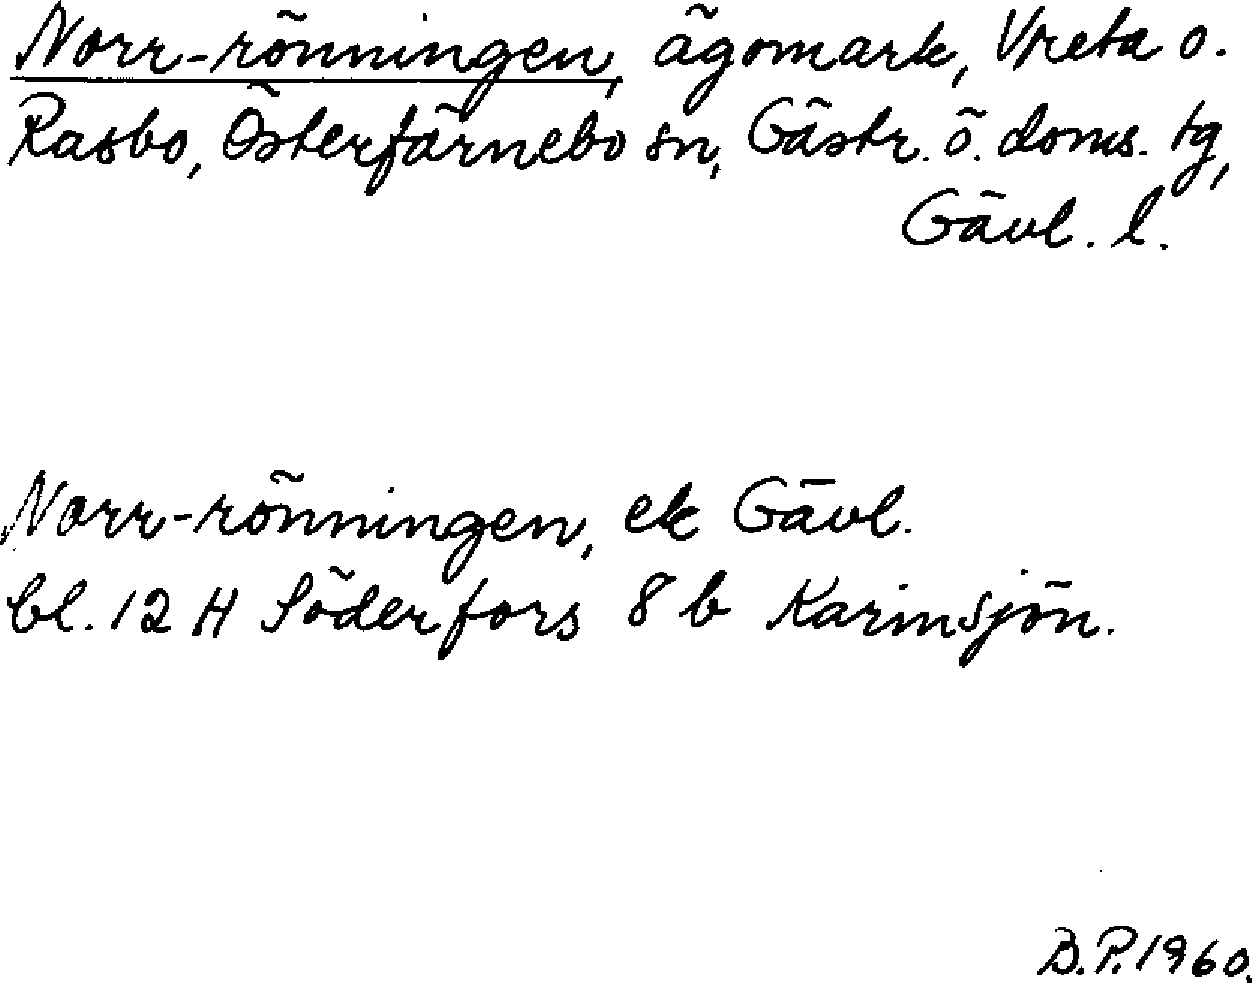 Norr-rönningen, ägomark, Vreta o.
Rasbo, Österfärnebo sn, Gästr. ö. doms. tg,
Gävl. l.
Norr-rönningen, ek Gävl.
bl. 12 H Söderfors 8 b Karinsjön.
B.P. 1960.